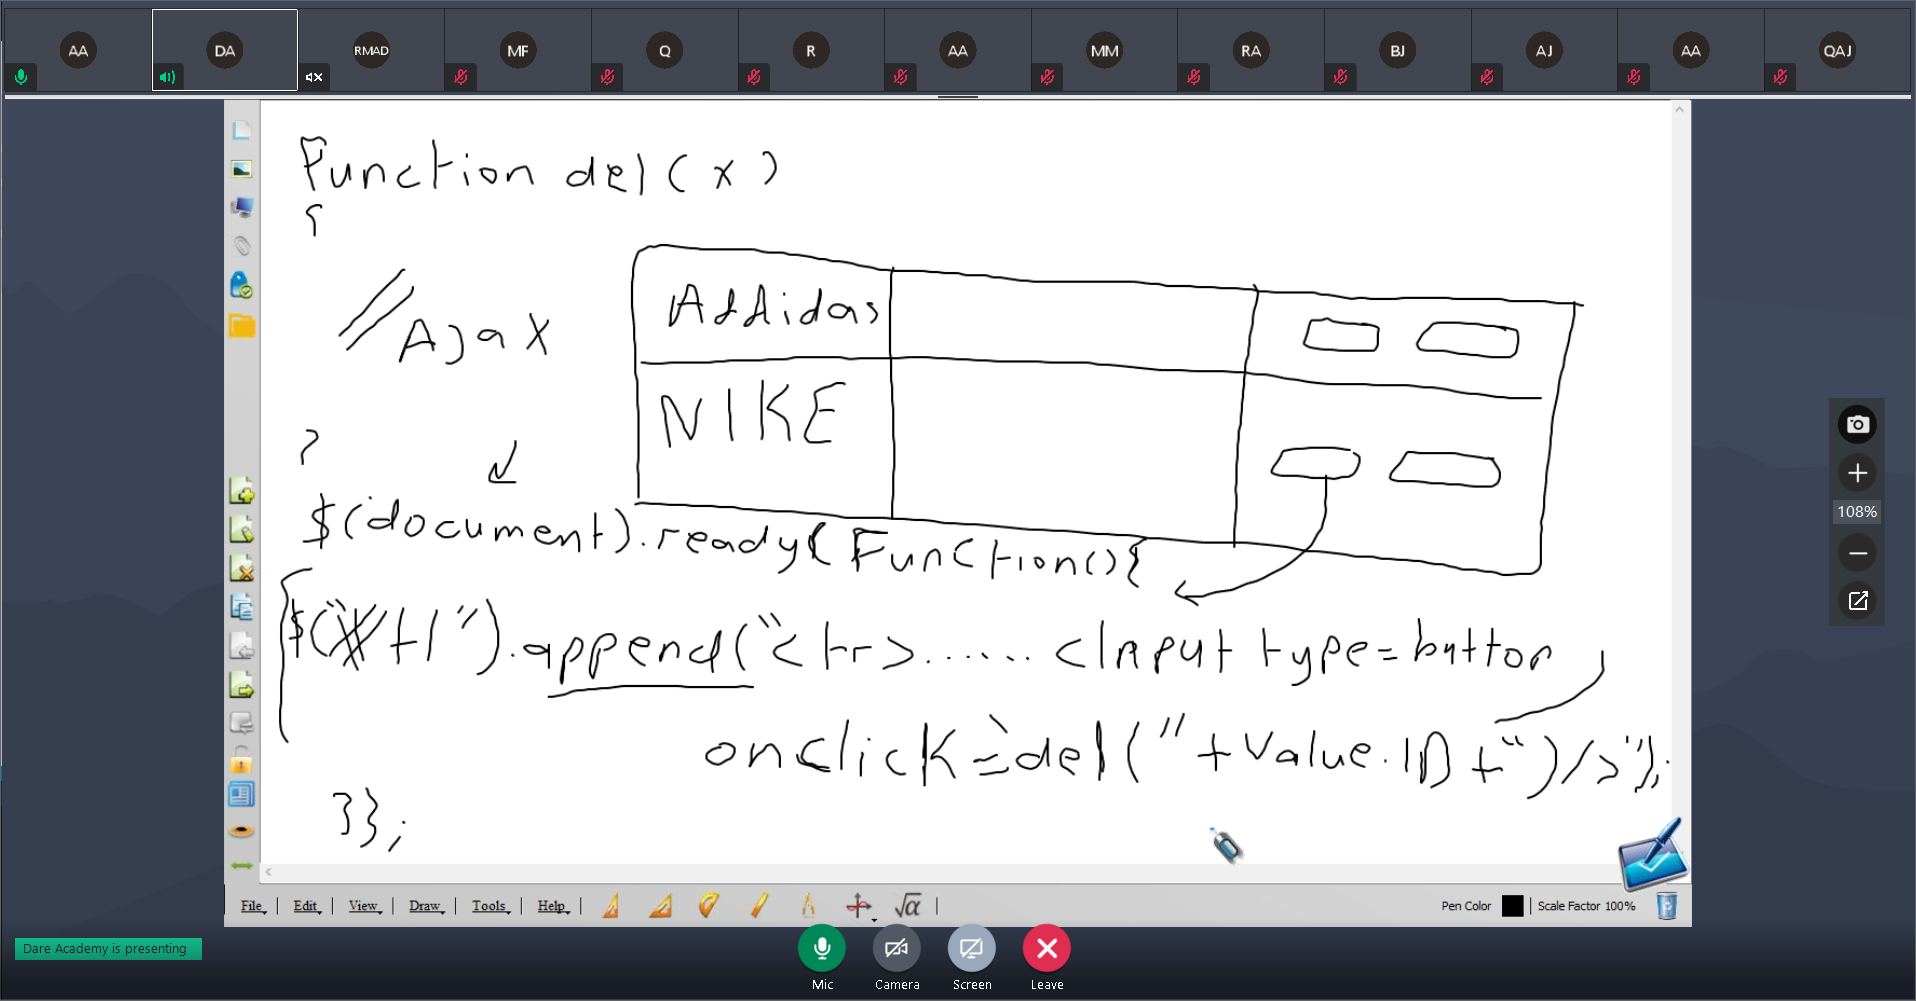 AA DA RMAD MF Q R AA MM RA BJ AJ AA QAJ
Function del(x)
{
//Ajax
Addidas
NIKE
$(document).ready(Function(){
").append("<tr>......<Input type=button
onclick=del("+Value.ID+")/>");
}};
108%
File Edit View Draw Tools Help √α Pen Color Scale Factor 100%
Dare Academy is presenting
Mic Camera Screen Leave